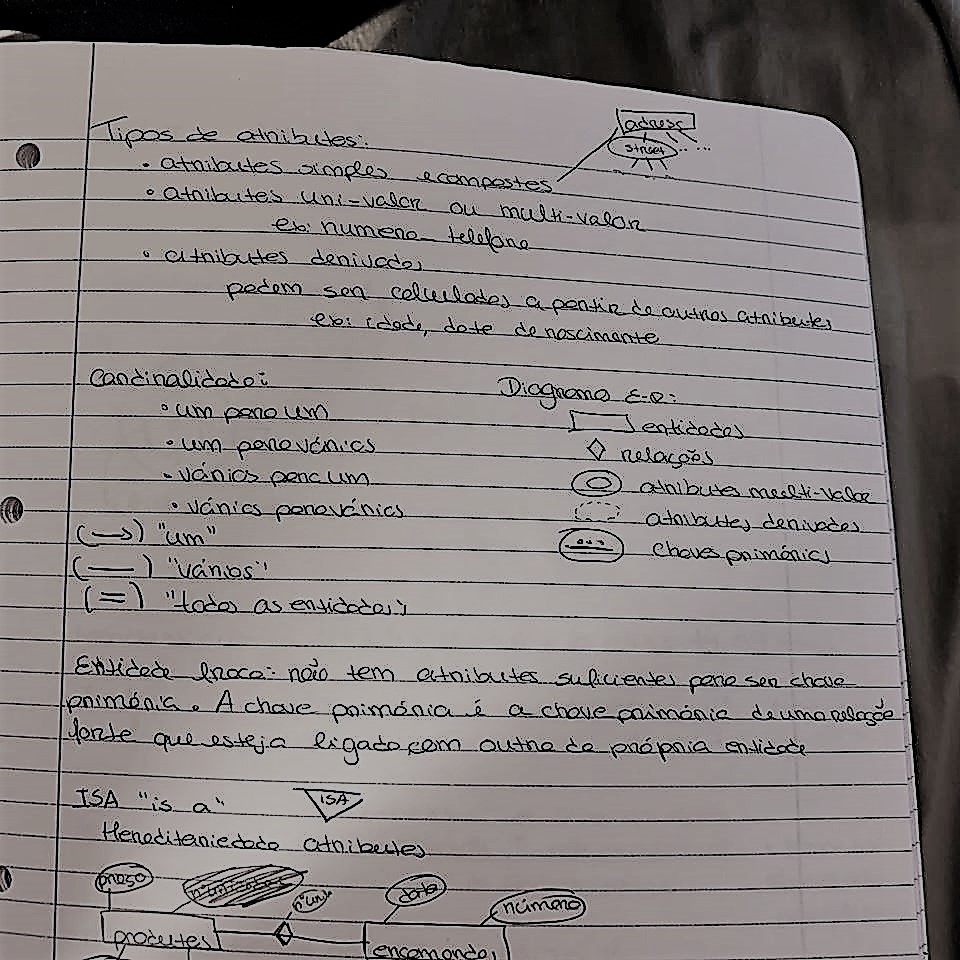 Tipos de atributos:
adress
street
• atributos simples e compostos
• atributos uni-valor ou multi-valor
ex: numero-telefone
• atributos derivados
podem ser calculados a partir de outros atributos
ex: idade, data de nascimento
Cardinalidade:
• um para um
• um para vários
• vários para um
• vários para vários
(→) "um"
(—) "vários"
(=) "todas as entidades"
Diagrama E-R:
entidades
relações
atributos multi-valor
atributos derivados
chaves primárias
Entidade fraca: não tem atributos suficientes para ser chave
primária. A chave primária é a chave primária de uma relação
forte que esteja ligada com outra da própria entidade
ISA "is a" ISA
Hereditariedade atributos
data
número
produtos
encomendas